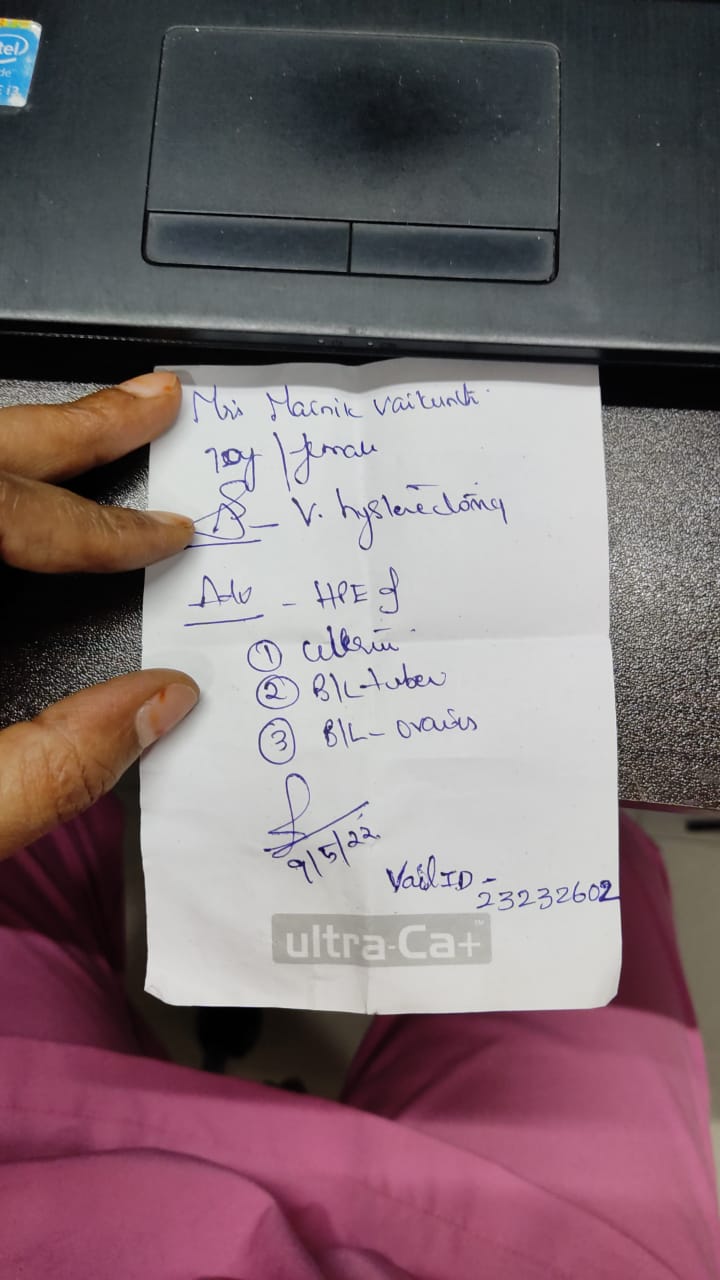 tel
de
i3
Mrs Mainik Vaikunth
70y / female
V. hysterectomy
Adv - HPE of
① uterus
② B/L - tubes
③ B/L - ovaries
9/5/22
Vail ID -
23232602
ultra-Ca+™